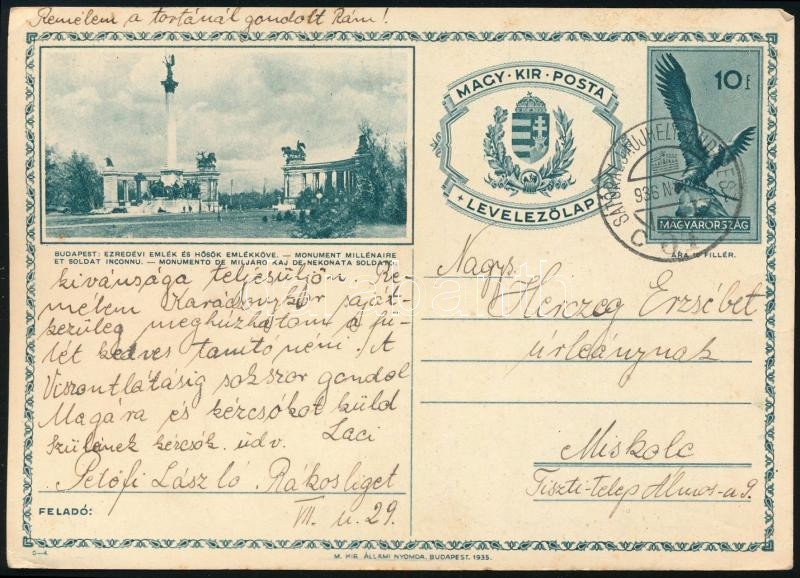 Remélem a tortánál gondolt Rám!
BUDAPEST: EZREDÉVI EMLÉK ÉS HŐSÖK EMLÉKKÖVE. — MONUMENT MILLÉNAIRE
ET SOLDAT INCONNU. — MONUMENTO DE MILJARO KAJ DE NEKONATA SOLDATO.
kivánsága teljesüljön. Re-
mélem Karádonykor saját-
kezüleg meghúzhatom a fü-
lét kedves tanitó néni. A
Viszontlátásig sokszor gondol
Magára és kézcsókot küld
Szüleinek kézcsók. üdv. Laci
Petőfi László Rákosliget
FELADÓ: VII. u. 29.
MAGY · KIR · POSTA
LEVELEZŐLAP
10 f
MAGYARORSZÁG
ÁRA 10 FILLÉR.
936
Nagys.
Herczeg Erzsébet
úrleánynak
Miskolc
Tiszti-telep Álmos-u 9.
M. KIR. ÁLLAMI NYOMDA, BUDAPEST. 1935.